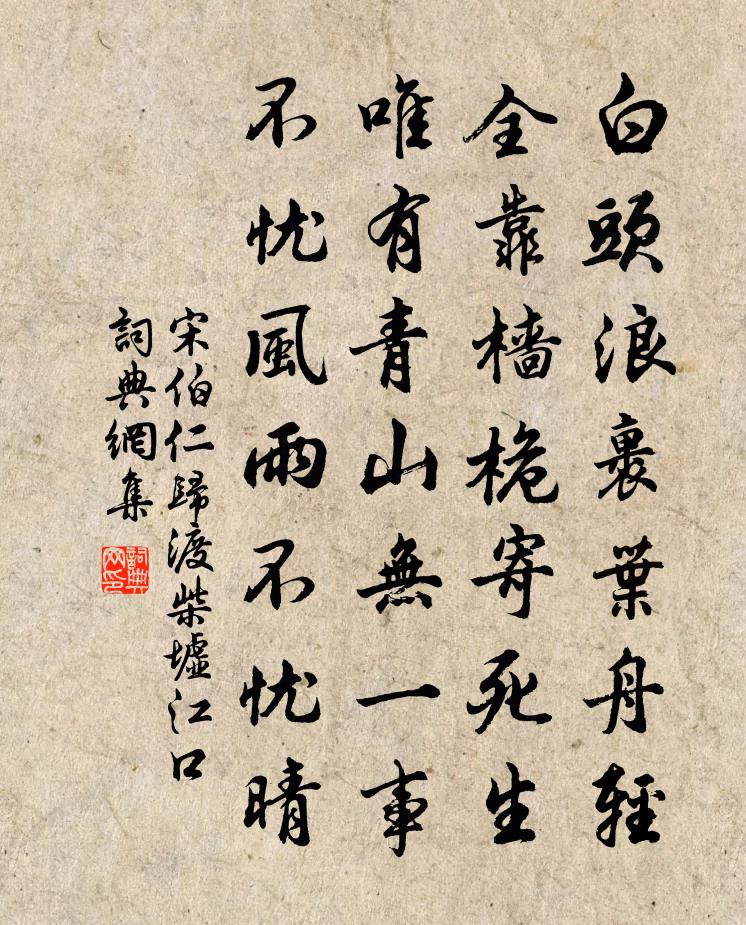 白頭浪裏葉舟輕
全靠檣桅寄死生
唯有青山無一事
不忧風雨不忧晴
宋伯仁歸渡柴墟江口
詞典網集
詞典網印